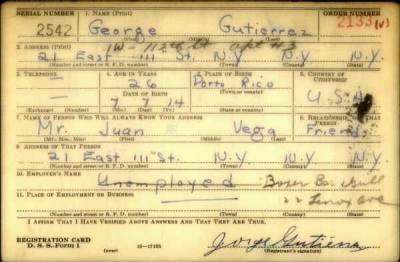 SERIAL NUMBER 1. NAME (Print) ORDER NUMBER
2542 George Gutierrez 2133
1 W- 112th St Apt #3
2. ADDRESS (Print)
21 East 111 St. N.Y. N.Y. N.Y.
(Number and street or R. F. D. number) (Town) (County) (State)
3. TELEPHONE 4. AGE IN YEARS 5. PLACE OF BIRTH 6. COUNTRY OF CITIZENSHIP
26 Porto Rico
DATE OF BIRTH (Town or county)
7 7 14 U.S.A
(Exchange) (Number) (Mo.) (Day) (Yr.) (State or country)
7. NAME OF PERSON WHO WILL ALWAYS KNOW YOUR ADDRESS 8. RELATIONSHIP OF THAT PERSON
Mr. Juan Vega Friend
(Mr., Mrs., Miss) (First) (Middle) (Last)
9. ADDRESS OF THAT PERSON
21 East 111 St. N.Y N.Y N.Y
(Number and street or R. F. D. number) (Town) (County) (State)
10. EMPLOYER'S NAME
Unemployed
11. PLACE OF EMPLOYMENT OR BUSINESS
Lenox Ave
(Number and street or R. F. D. number) (Town) (County) (State)
I AFFIRM THAT I HAVE VERIFIED ABOVE ANSWERS AND THAT THEY ARE TRUE.
REGISTRATION CARD
D. S. S. Form 1 16-17105 Jorge Gutierrez
(Registrant's signature)